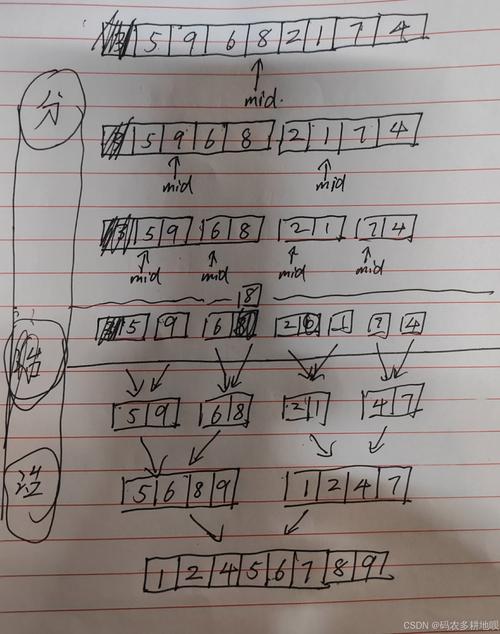 5 9 6 8 2 1 7 4
mid.
分
5 9 6 8 2 1 7 4
mid mid
5 9 6 8 2 1 7 4
mid mid mid mid
8
5 9 6 2 1 7 4
5 9 6 8 2 1 4 7
5 6 8 9 1 2 4 7
1 2 4 5 6 7 8 9
CSDN @码农多耕地呗